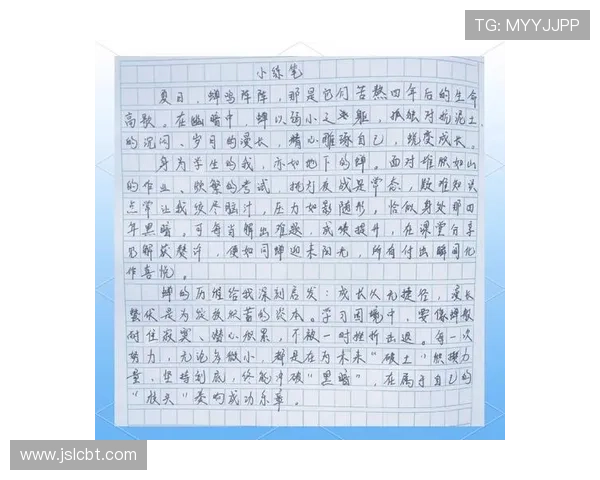 TG: MYYJJPP
小练笔
夏日，蝉鸣阵阵，那是它们苦熬四年后的生命
高歌。在幽暗中，蝉以弱小之躯，孤独对抗泥土
的沉闷、岁月的漫长，精心雕琢自己，筑变成长。
身为学生的我，亦如地下的蝉。面对堆积如山
的作业、频繁的考试，挑灯夜战是常态，疑难知识
点常让我绞尽脑汁，压力如影随形，恰似身处那四
年黑暗。可每当解出难题，成绩提升，在课堂分享
见解获赞许，便如同蝉迎来阳光，所有付出瞬间化
作喜悦。
蝉的历程给我深刻启发：成长从无捷径，漫长
蛰伏是为发放积蓄的资本。学习困境中，要像蝉般
耐住寂寞、潜心积累，不被一时挫折击退。每一次
努力，无论多微小，都是在为未来“破土”积攒力
量，坚持到底，终能冲破“黑暗”，在属于自己的
“枝头”奏响成功乐章。
www.jslcbt.com